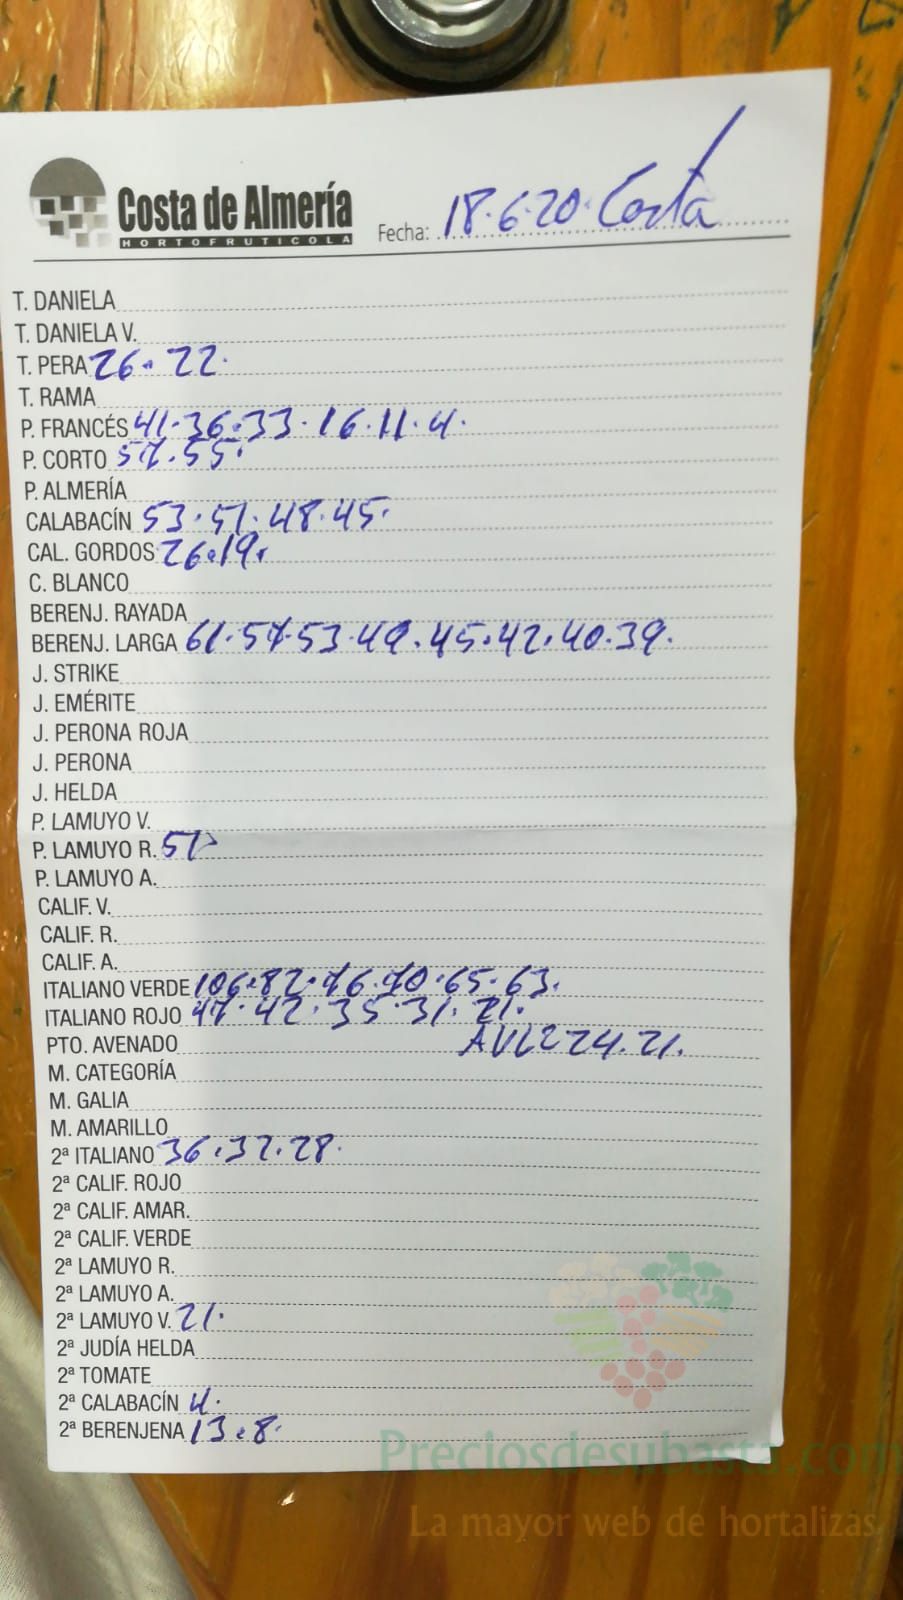 Costa de Almería
HORTOFRUTICOLA
Fecha: 18·6·20· Costa
T. DANIELA
T. DANIELA V.
T. PERA 26·22·
T. RAMA
P. FRANCÉS 41·36·33·16·11·4·
P. CORTO 57·55·
P. ALMERÍA
CALABACÍN 53·51·48·45·
CAL. GORDOS 26·19·
C. BLANCO
BERENJ. RAYADA
BERENJ. LARGA 61·57·53·49·45·42·40·39·
J. STRIKE
J. EMÉRITE
J. PERONA ROJA
J. PERONA
J. HELDA
P. LAMUYO V.
P. LAMUYO R. 51
P. LAMUYO A.
CALIF. V.
CALIF. R.
CALIF. A.
ITALIANO VERDE 106·82·76·70·65·63·
ITALIANO ROJO 47·42·35·31·21·
PTO. AVENADO 24·21·
M. CATEGORÍA
M. GALIA
M. AMARILLO
2ª ITALIANO 36·32·28·
2ª CALIF. ROJO
2ª CALIF. AMAR.
2ª CALIF. VERDE
2ª LAMUYO R.
2ª LAMUYO A.
2ª LAMUYO V. 21·
2ª JUDÍA HELDA
2ª TOMATE
2ª CALABACÍN 4·
2ª BERENJENA 13·8·
Preciosdesubasta.com
La mayor web de hortalizas